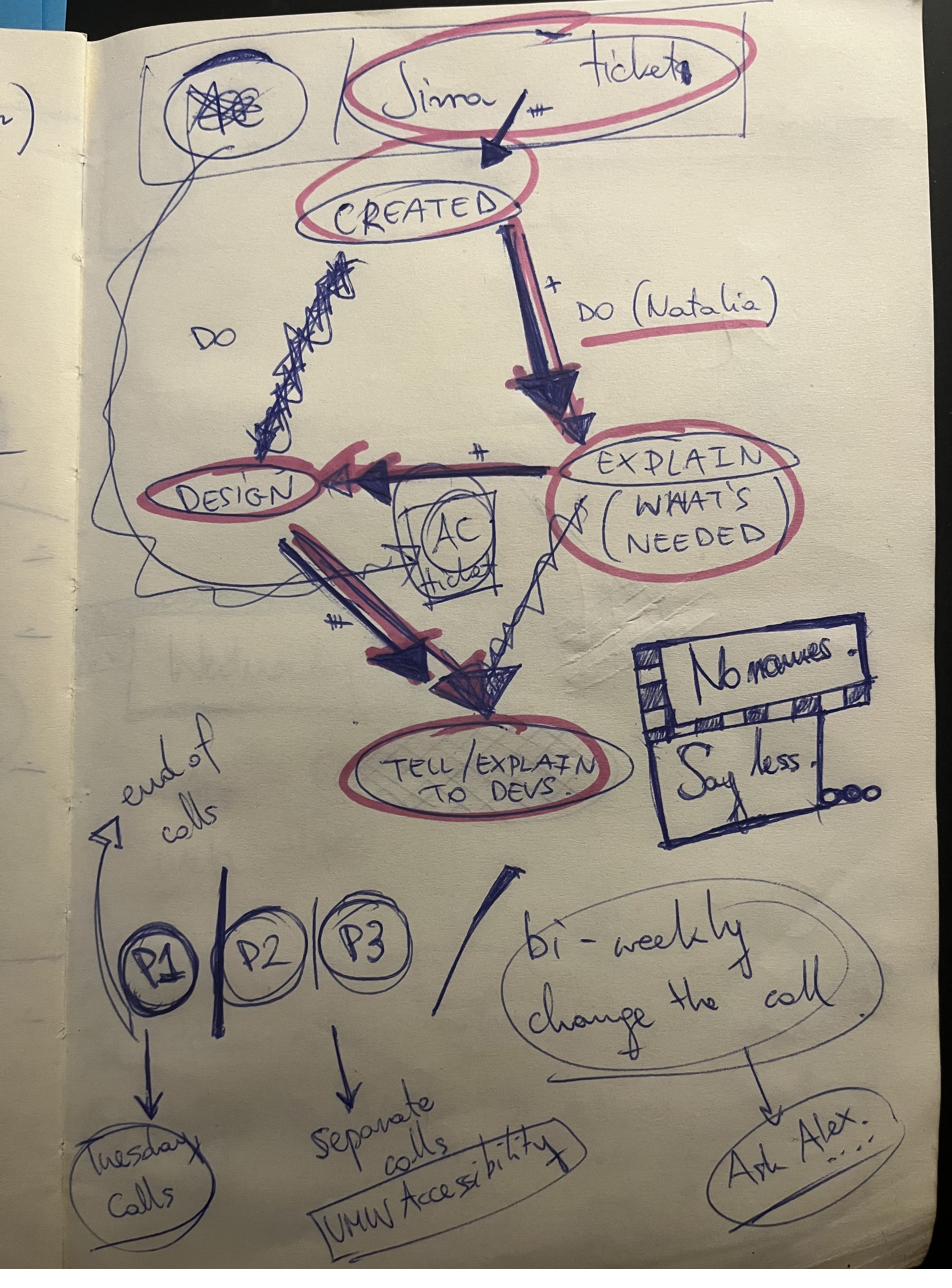 Jira tickets
CREATED
DO
DO (Natalia)
EXPLAIN
(WHAT'S
NEEDED)
DESIGN
AC
ticket
No names.
Say less.
TELL/EXPLAIN
TO DEVS.
end of
calls
P1
P2
P3
bi-weekly
change the call
Tuesday
calls
separate
calls
UMW Accessibility
Ask Alex...